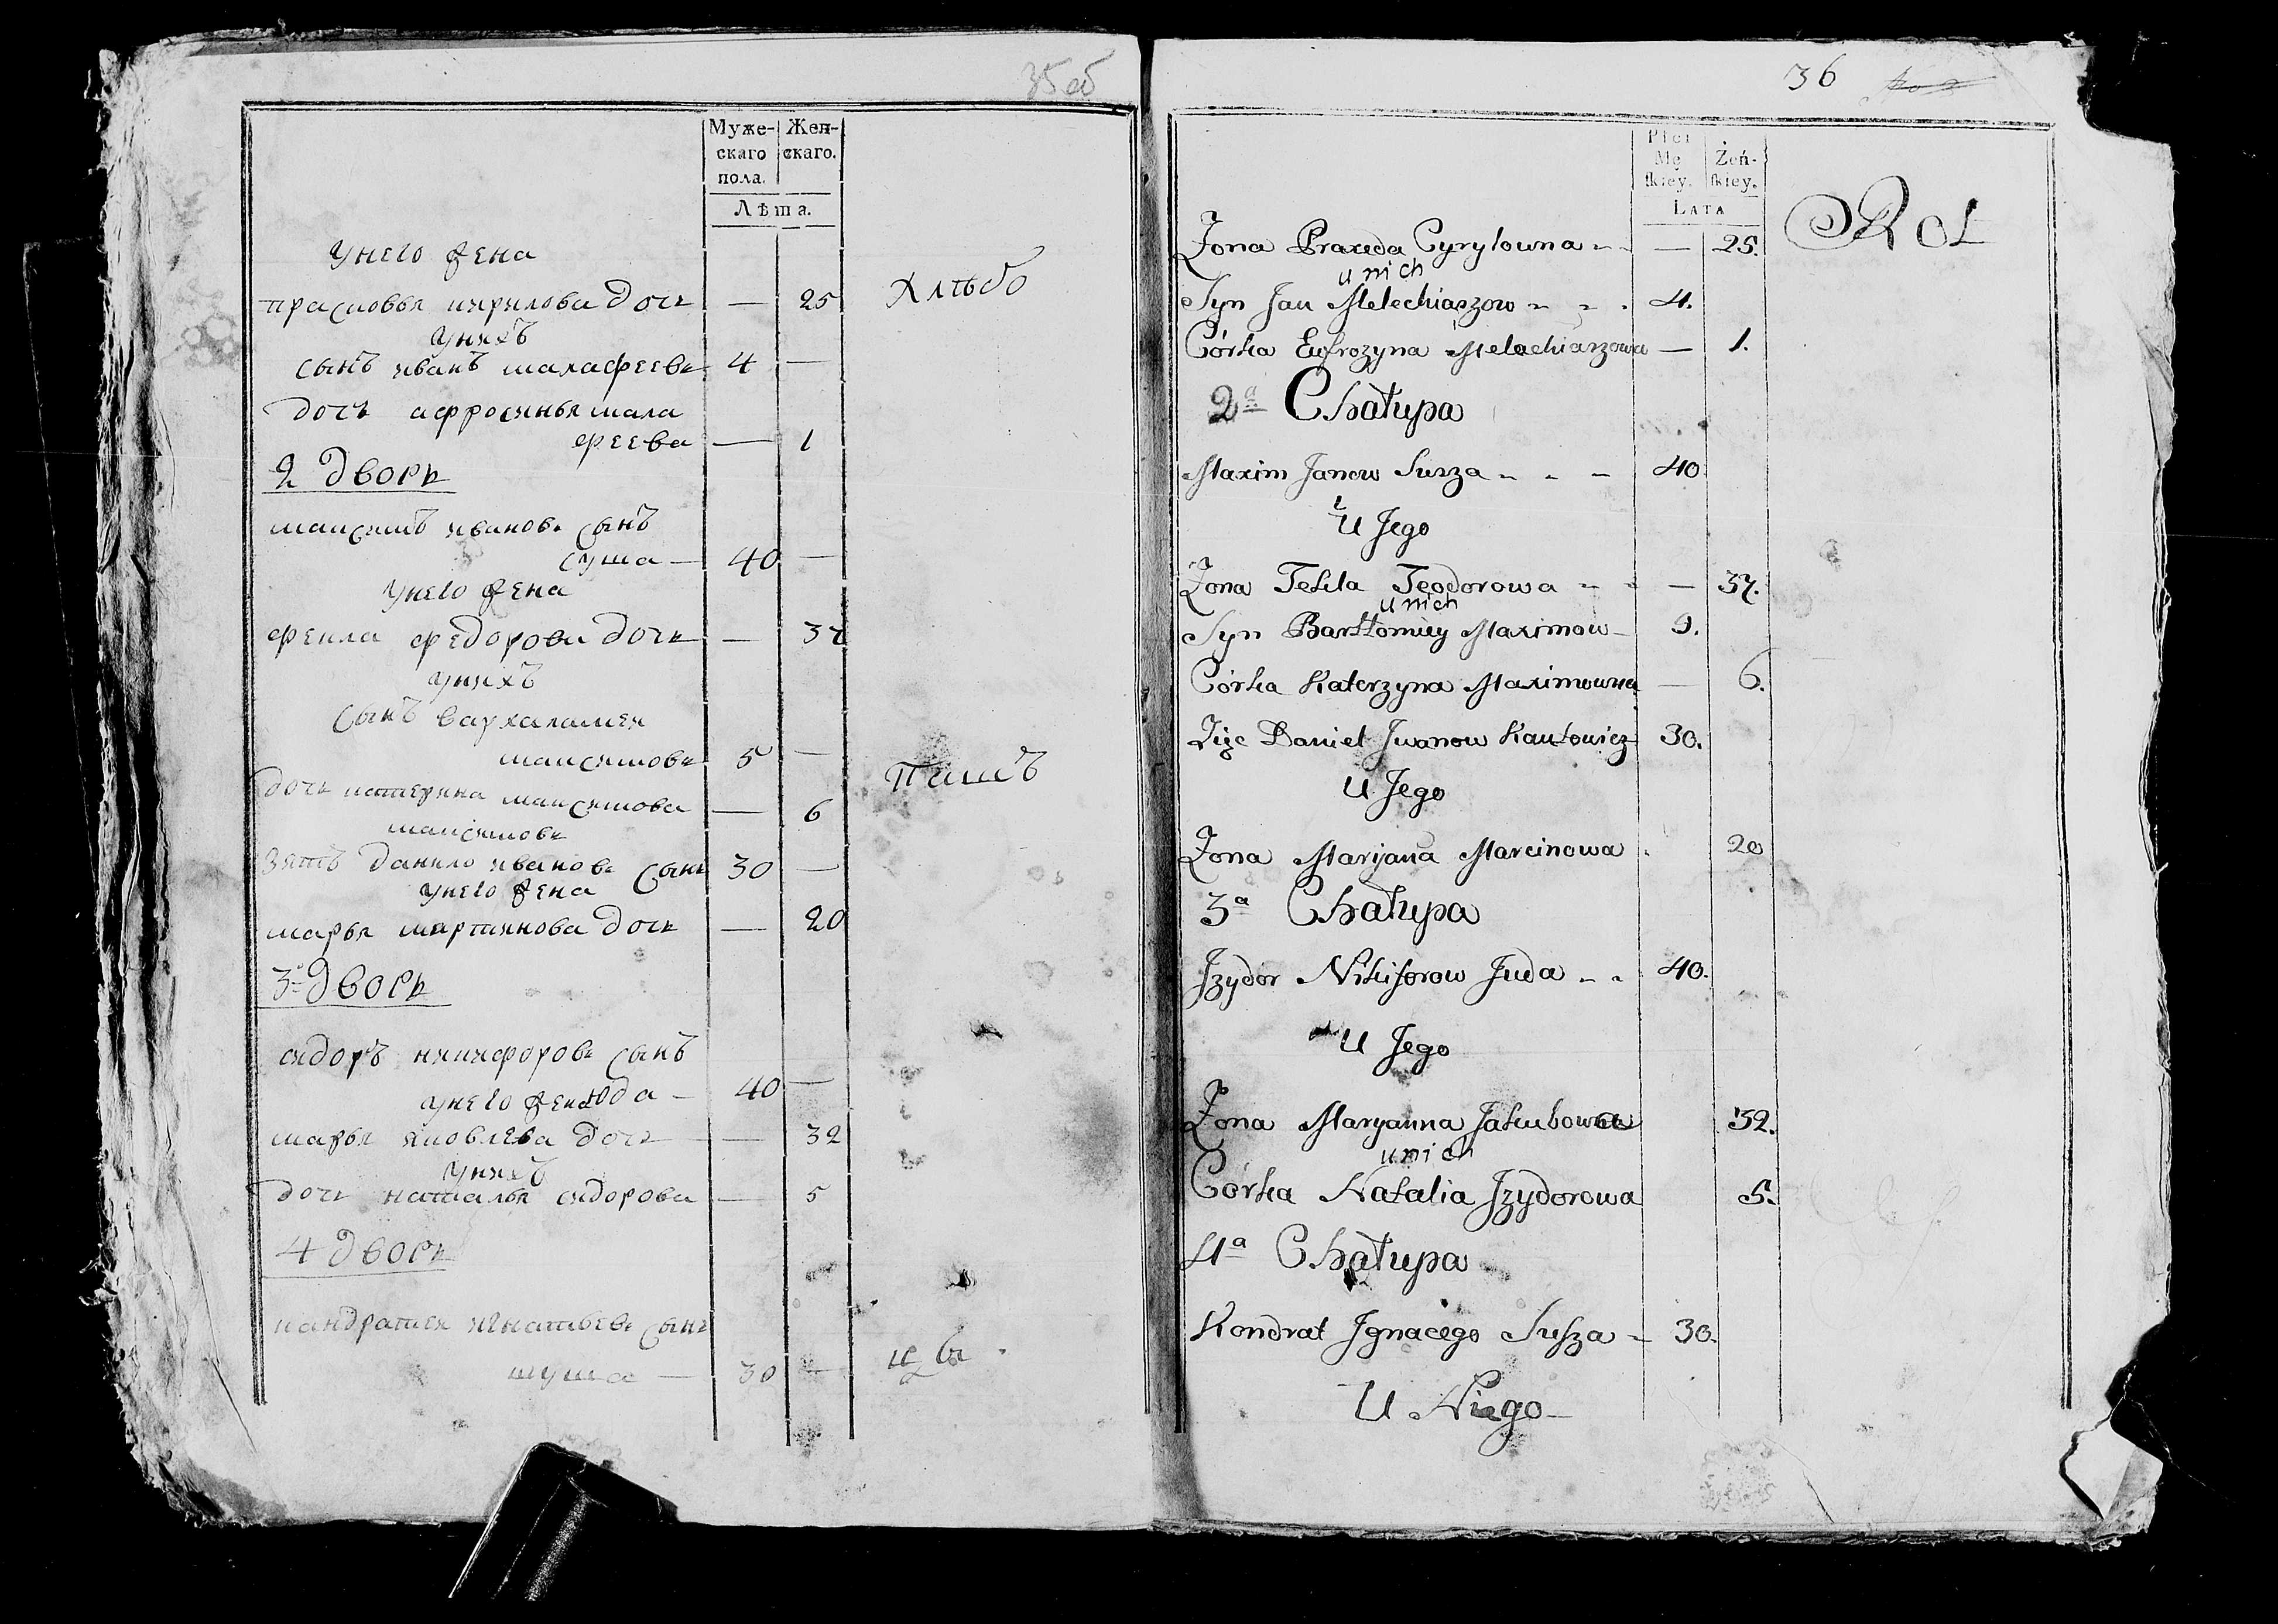 35 об
Муже-
скаго
пола.
Жен-
скаго.
Лѣта.
унего жена
прасковья кирилова дочь — 25
Хлѣбо
унихъ
сынъ иванъ малафеевъ 4 —
дочь афросинья мала
феева — 1
2 дворъ
максимъ ивановъ сынъ
суша — 40 —
унего жена
фекла федорова дочь — 37
унихъ
сынъ вархаламей
максимовъ 5 —
пашъ
дочь катерина максимова — 6
максимовъ
зять данило ивановъ сынъ 30 —
унего жена
марья мартинова дочь — 20
3й дворъ
сидоръ никифоровъ сынъ
юда — 40 —
унего жена
марья яковлева дочь — 32
унихъ
дочь наталья сидорова — 5
4 дворъ
кандратей игнатьевъ сынъ
шуша — 30 —
36
Płci
Mę
skiey.
Żeń-
skiey.
LATA
Rol
Żona Praxeda Cyryłowna — 25.
u nich
Syn Jan Melechiaszow 4.
Córka Eufrozyna Melachiaszowa — 1.
2a Chałupa
Maxim Janow Susza 40
U Jego
Żona Tekla Teodorowa — 37.
u nich
Syn Bartłomiey Maximow 5.
Córka Katerzyna Maximowna — 6.
Zięc Daniel Jwanow Kautowicz 30.
U Jego
Żona Maryana Marcinowa 20
3a Chałupa
Jzydor Nikiforow Juda 40.
U Jego
Żona Maryanna Jakubowna 32.
u nich
Córka Natalia Jzydorowa 5.
4a Chałupa
Kondrat Jgnacego Susza 30.
U Niego